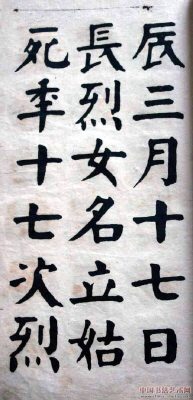 辰三月十七日
長烈女名立姑
死年十七次烈
中国书法艺术网